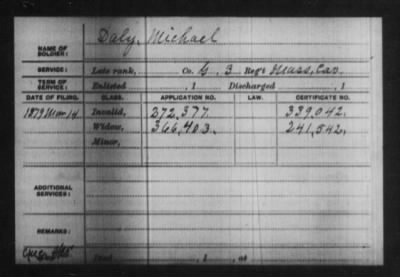 Daly, Michael
NAME OF SOLDIER:
SERVICE: Late rank, Co. G. 3 Reg't Mass, Cav.
TERM OF SERVICE: Enlisted , 1 Discharged , 1
DATE OF FILING. CLASS. APPLICATION NO. LAW. CERTIFICATE NO.
1879 Mar 14. Invalid, 272,377. 339,042.
Widow, 366,403. 241,542,
Minor,
ADDITIONAL SERVICES:
REMARKS:
Died , 1 , at